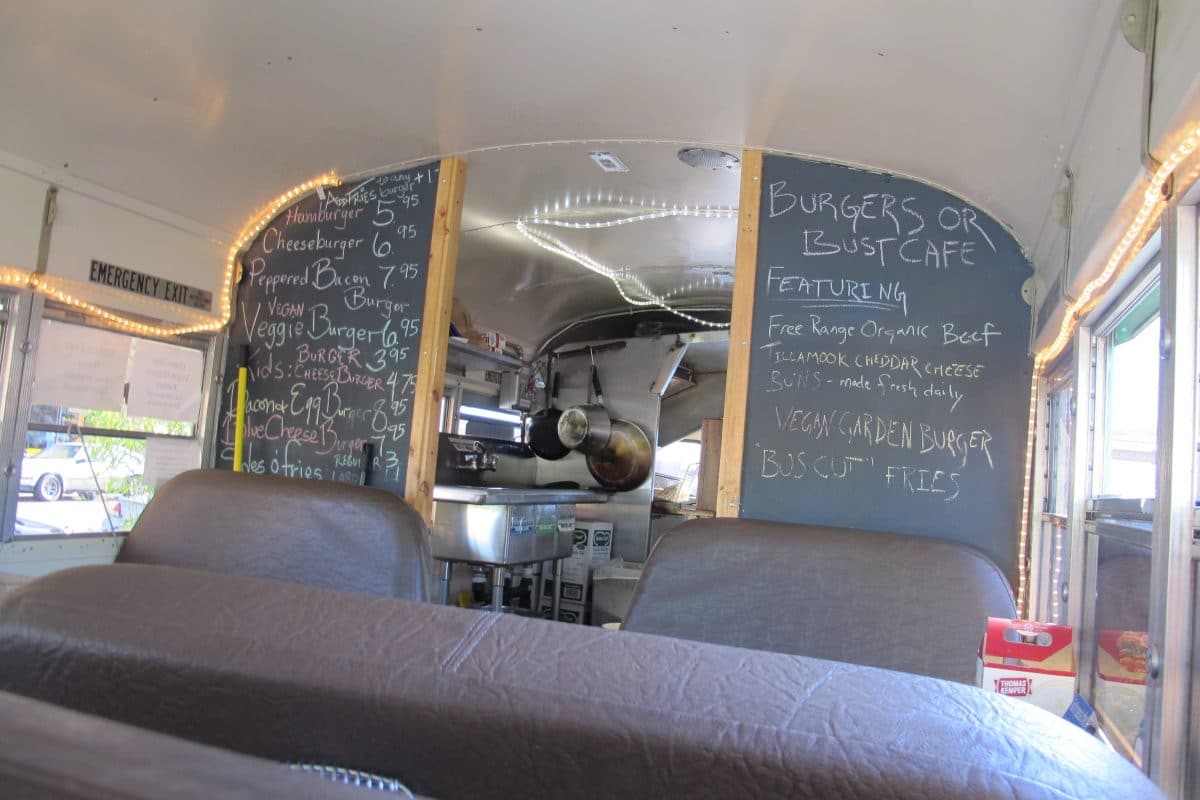 Add FRIES to any burger +1-
Hamburger 5.95
Cheeseburger 6.95
Peppered Bacon 7.95
Burger
VEGAN
Veggie Burger 6.95
Kids: BURGER 3.95
CHEESE BURGER 4.75
Bacon & Egg Burger 8.95
Blue Cheese Burger 7.95
Sides o' fries REGULAR 3
EMERGENCY EXIT
BURGERS OR
BUST CAFE
FEATURING
Free Range Organic Beef
TILLAMOOK CHEDDAR CHEESE
BUNS - made fresh daily
VEGAN GARDEN BURGER
"BUS CUT" FRIES
THOMAS
KEMPER